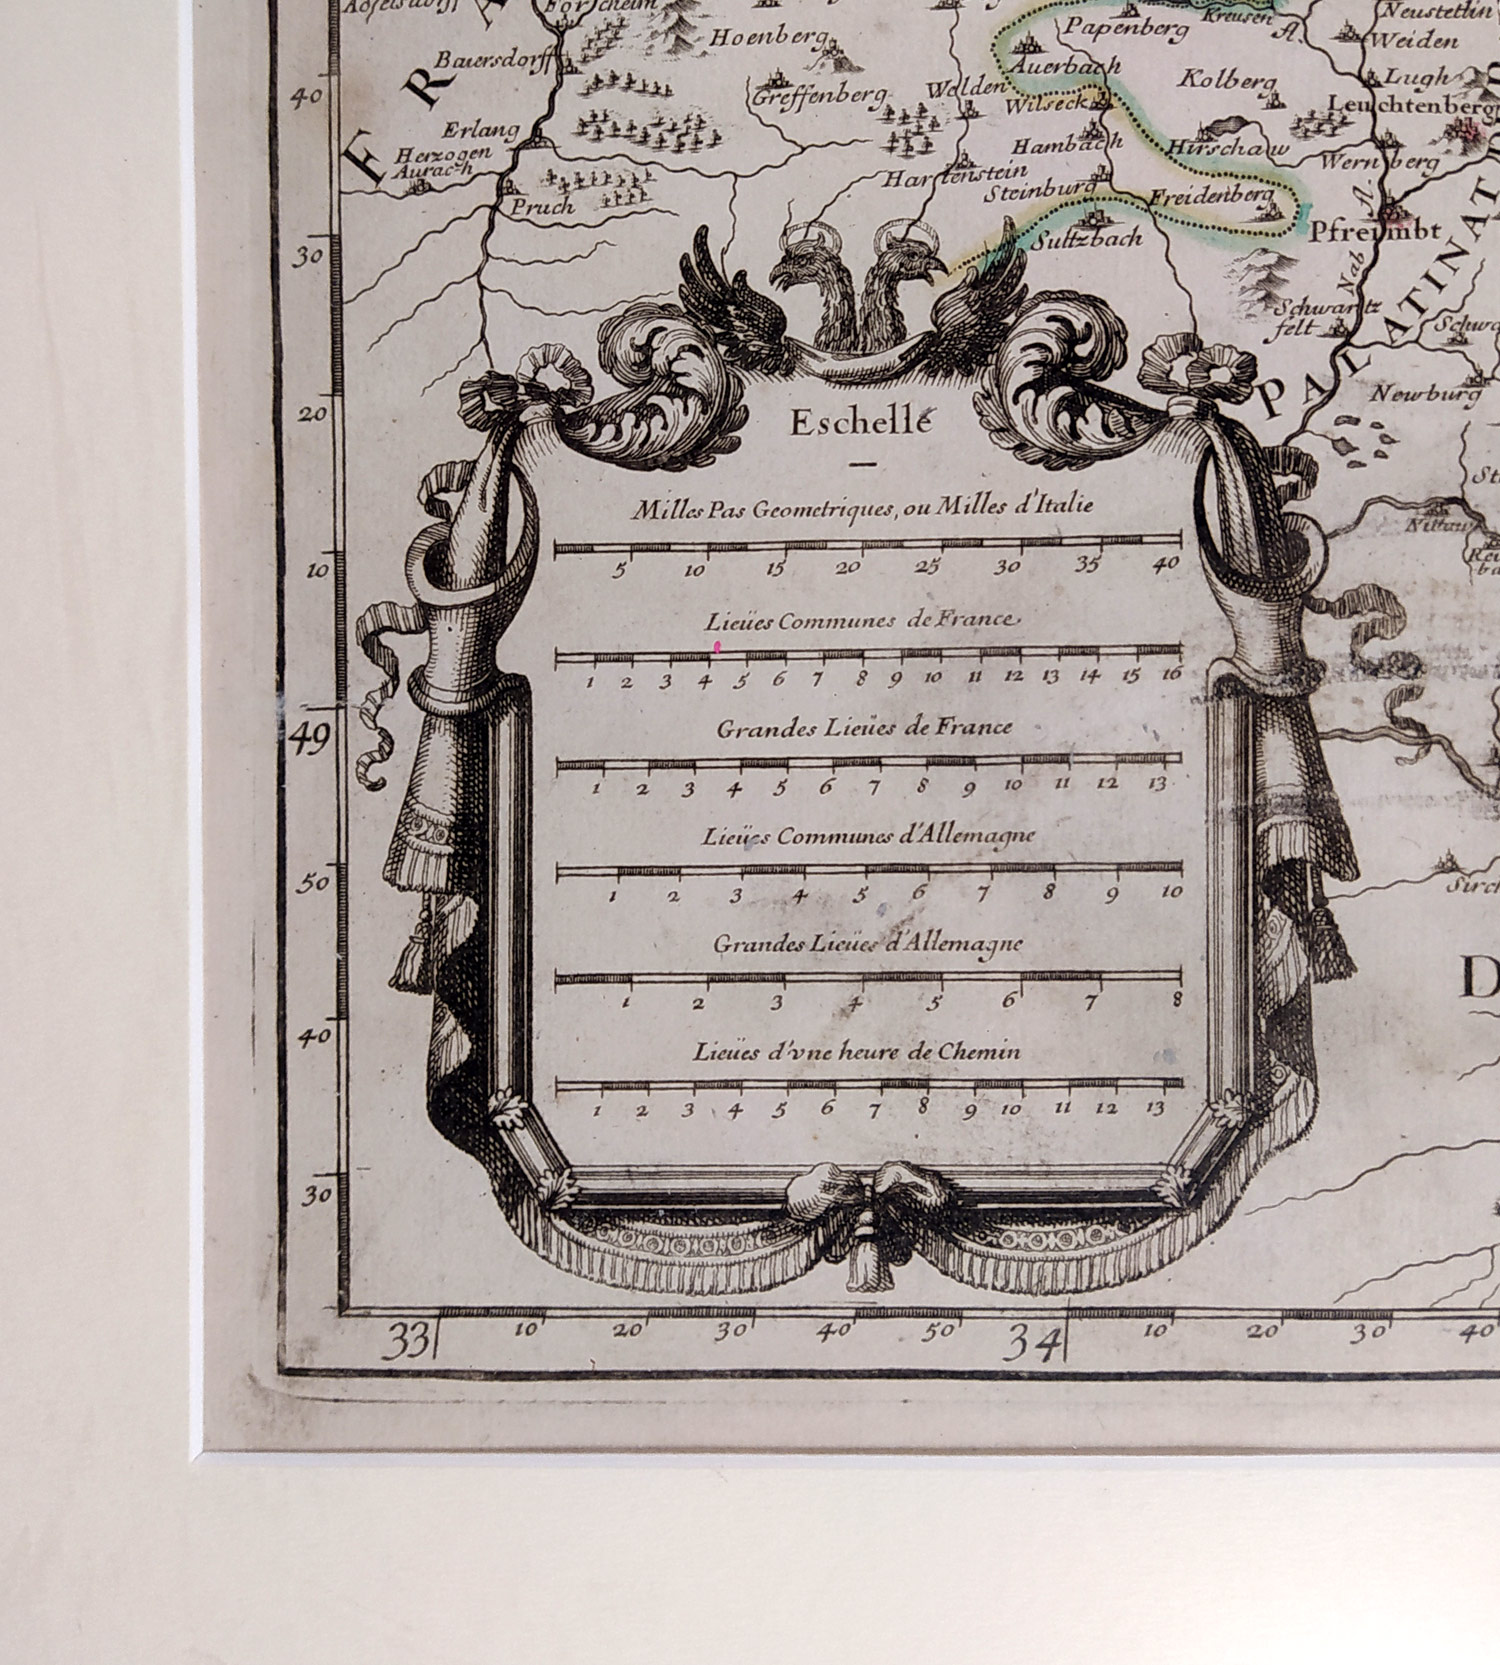 Forscheim
Neustetlin
Papenberg
Kreusen
fl.
Weiden
Hoenberg
Baiersdorff
Auerbach
Kolberg
Lugh
Greffenberg
Welden
Wilseck
Leuchtenberg
40
F R
Erlang
Herzogen
Aurach
Hambach
Hirschauw
Wernberg
Hartenstein
Steinburg
Freidenberg
fl.
Pruch
Sultzbach
Pfreimbt
30
Nab
Schwartz
felt
PALATINAT
20
Newburg
Eschelle
Milles Pas Geometriques, ou Milles d'Italie
5 10 15 20 25 30 35 40
10
Nittaw
Lieües Communes de France
1 2 3 4 5 6 7 8 9 10 11 12 13 14 15 16
49
Grandes Lieües de France
1 2 3 4 5 6 7 8 9 10 11 12 13
Lieües Communes d'Allemagne
1 2 3 4 5 6 7 8 9 10
50
Sirch
Grandes Lieües d'Allemagne
1 2 3 4 5 6 7 8
D
40
Lieües d'vne heure de Chemin
1 2 3 4 5 6 7 8 9 10 11 12 13
30
33 10 20 30 40 50 34 10 20 30 40